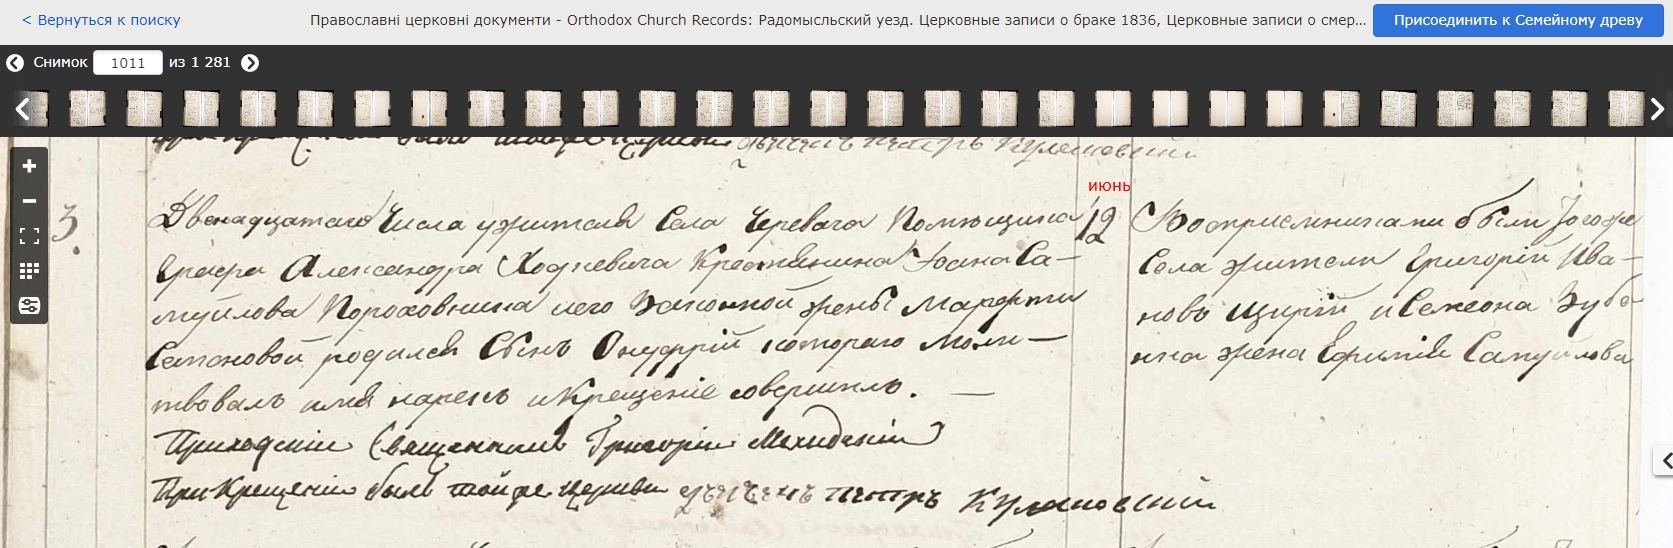 < Вернуться к поиску
Православні церковні документи - Orthodox Church Records: Радомысльский уезд. Церковные записи о браке 1836, Церковные записи о смер...
Присоединить к Семейному древу
Снимок 1011 из 1 281
была тойже церкви Петръ Кулаковский
июнь
3.
Двенадцатаго Числа ужителя Села Черевача Помещика
Графа Александра Ходкевича Крестянина Іоана Са-
муйлова Пороховника иего Законной жены Марфы
Семеновой родился Сынъ Онуфрій котораго Моли-
твовалъ имя нарекъ и Крещеніе совершилъ. —
Приходскій Священникъ Григорій
При Крещеніи былъ тойже церкви Петръ Кулаковский
12
Восприемниками были Тогоже
Села жители Григорій Ива-
новъ Щирій и Семеона Зубе-
нка жена Ефимія Самуйлова